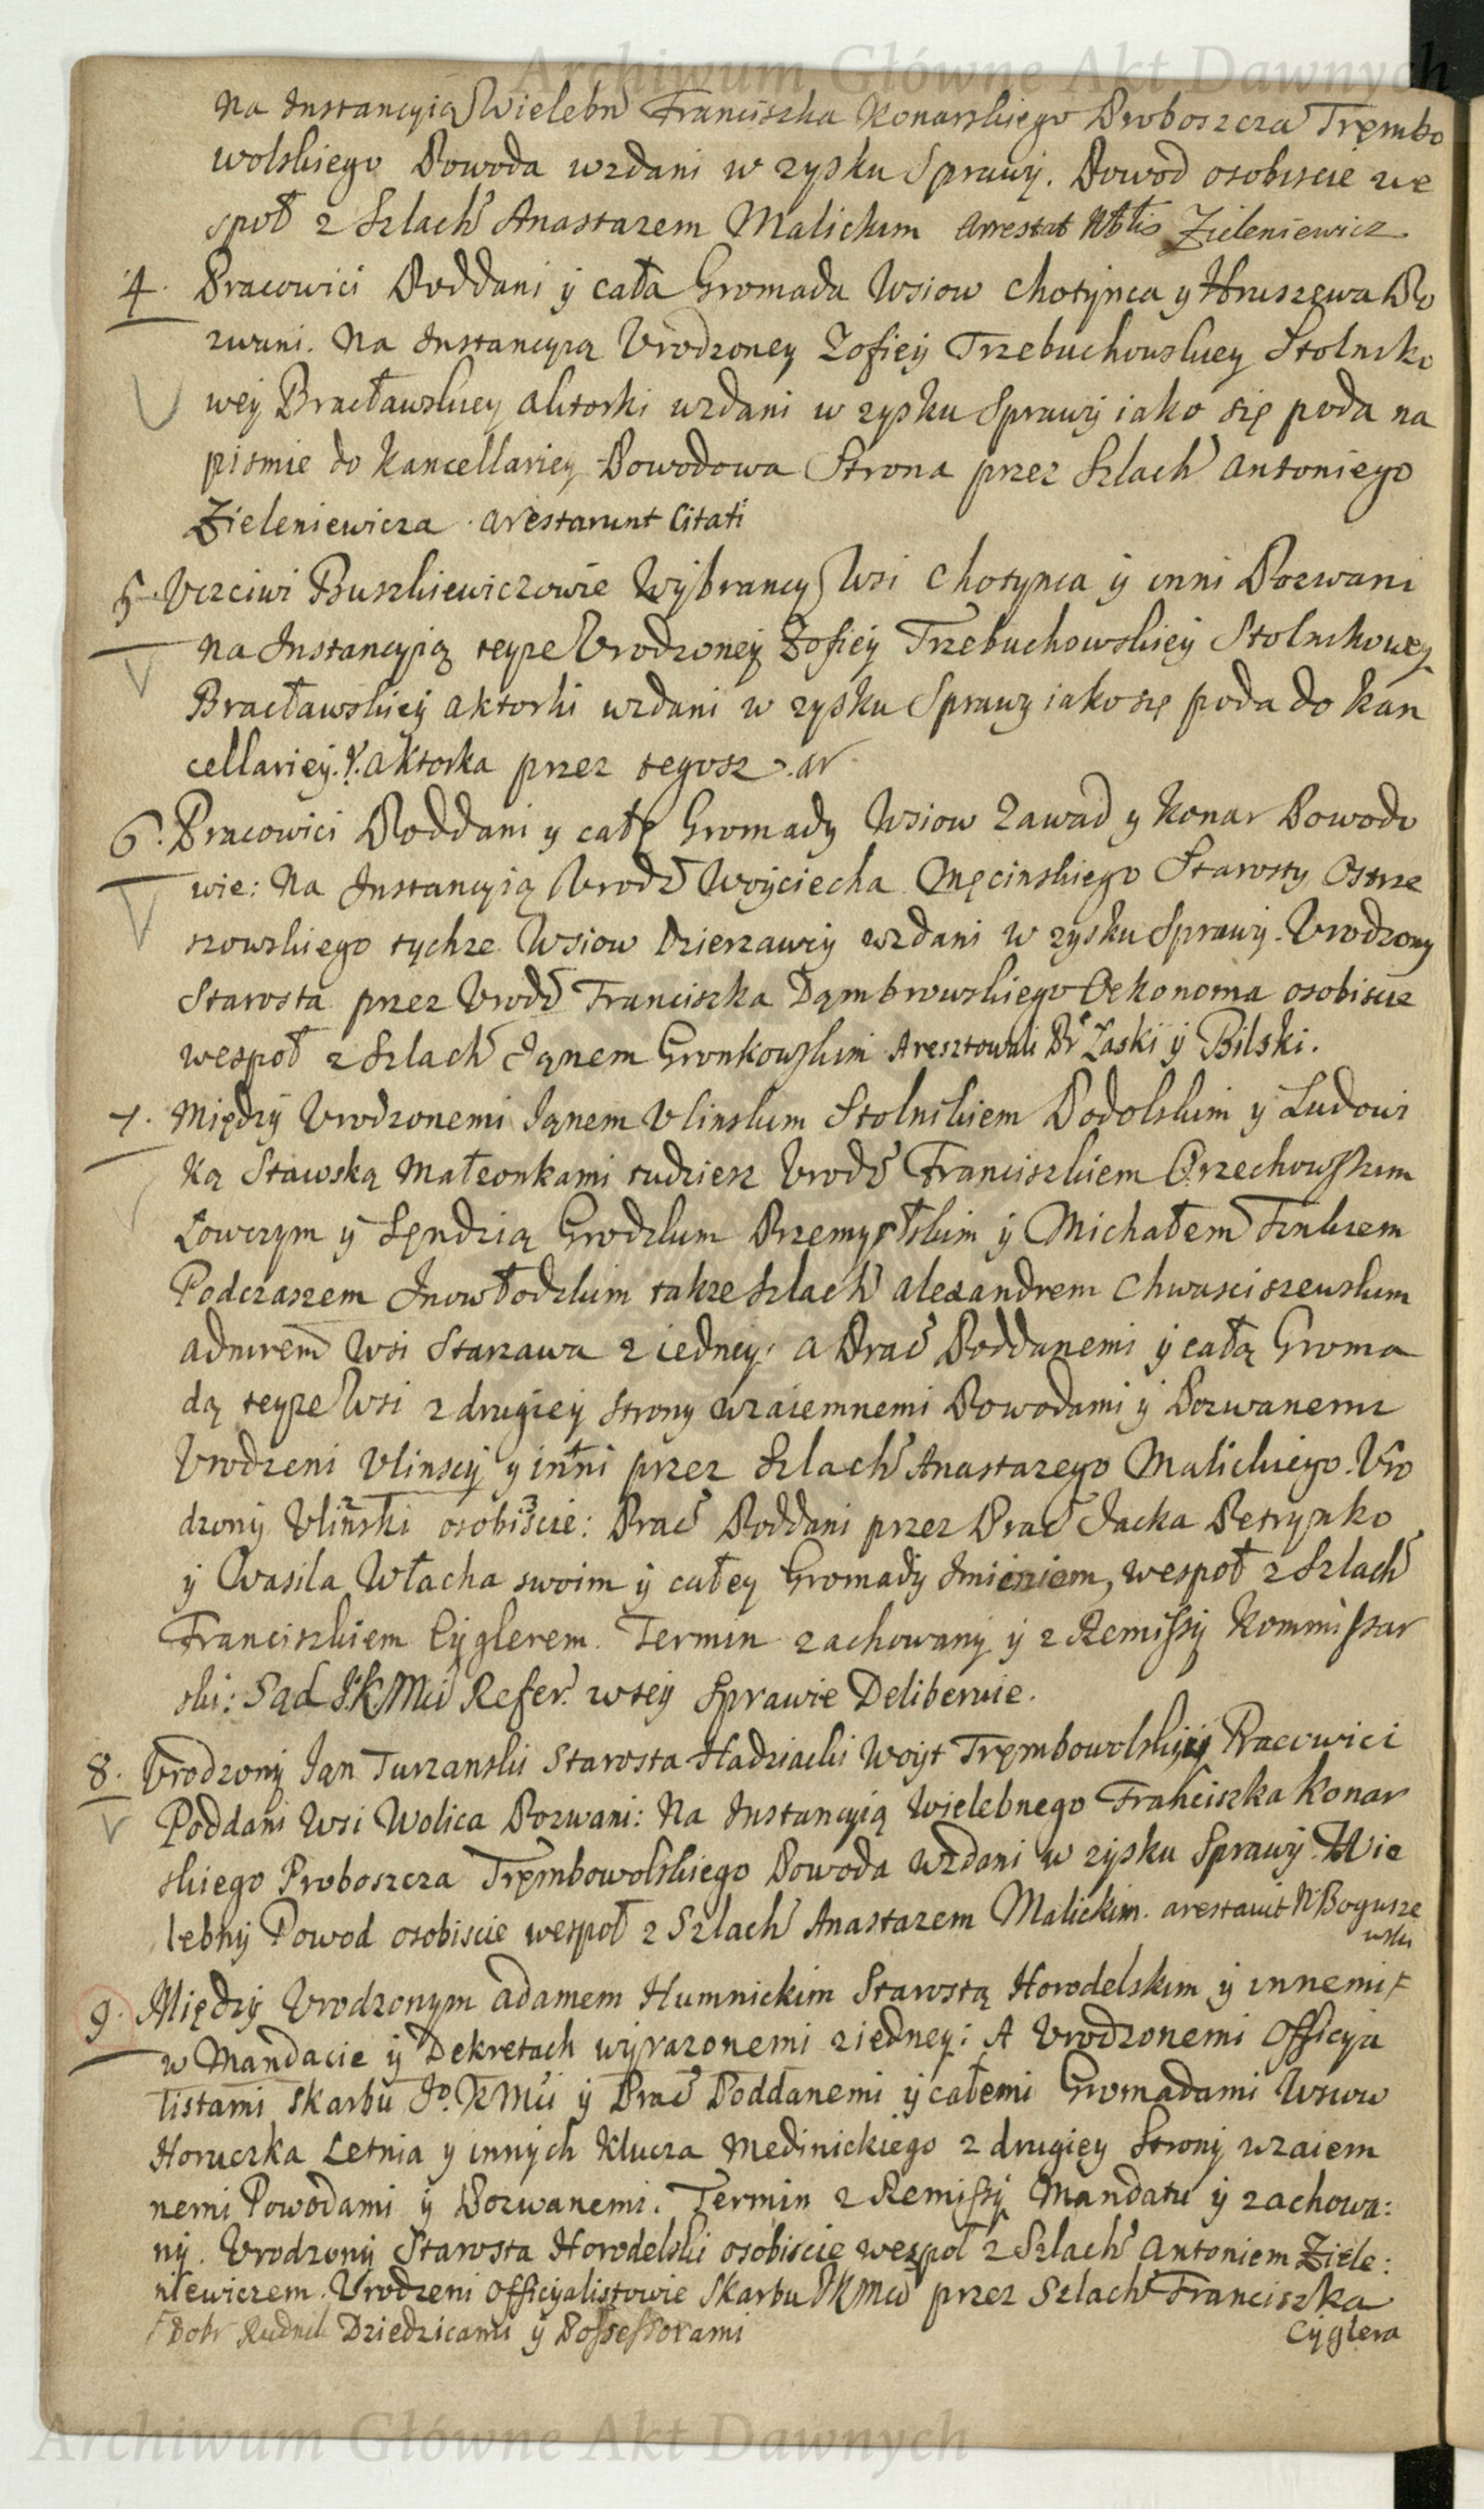 Archiwum Główne Akt Dawnych
Na Instancyią Wielebń Franciszka Konarskiego Proboszcza Trembo
wolskiego Powoda wzdani w zysku Sprawy. Powod osobiscie we
społ z Szlach Anastazem Malickim Arrestat Nblis Zieleniewicz
4. Pracowici Poddani y cała Gromada Wsiow Chotynca y Hruszewa Po
zwani. Na Instancyią Vrodzoney Zofiey Trzebuchowskiey Stolniko
wey Bracławskiey Aktorki wzdani w zysku Sprawy iako się poda na
pismie do Kancellariey Powodowa Strona przez Szlach Antoniego
Zieleniewicza. Arestarunt Citati
5. Vczciwi Buszkiewiczowie Wybrancy Wsi Chotynca y inni Pozwani
Na Instancyią teyze Vrodzoney Zofiey Trzebuchowskiey Stolnikowey
Bracławskiey Aktorki wzdani w zysku Sprawy iako się poda do Kan
cellariey. Aktorka przez tegosz. Ar
6. Pracowici Poddani y całe Gromady Wsiow Zawad y Konar Powodo
wie: Na Instancyią Vrodź Woyciecha Męcinskiego Starosty Ostrze
szowskiego tychze Wsiow Dzierzawcy wzdani w zysku Sprawy. Vrodzony
Starosta przez Vrodź Franciszka Dąmbrowskiego Oekonoma osobiscie
wespoł z Szlach Janem Gronkowskim Aresztowali Łaski y Bilski.
7. Między Vrodzonemi Janem Vlinskim Stolnikiem Podolskim y Ludowi
ką Stawską Małzonkami tudziesz Vrodź Franciszkiem Orzechowskim
Łowczym y Sendzią Grodzkim Przemyslskim y Michałem
Podczaszem Inowłodzkim takze Szlach Alexandrem Chwasciszewskim
Admrem Wsi Starzawa z iedney: a Prać Poddanemi y całą Groma
dą teyze Wsi z drugiey strony wzaiemnemi Powodami y Pozwanemi
Vrodzeni Vlinscy y inni przez Szlach Anastazego Malickiego. Vro
dzony Vlinski osobiscie: Prać Poddani przez Prać Jacka Petrynko
y Wasila Włacha swoim y całey Gromady Imieniem, wespoł z Szlach
Franciszkiem Cyglerem. Termin zachowany y z Remissy Kommissar
ski: Sąd JKMci Refer. w tey Sprawie Deliberuie.
8. Vrodzony Jan Turzanski Starosta Hadziacki Woyt Trembowolski y Pracowici
Poddani Wsi Wolica Pozwani: Na Instancyią Wielebnego Franciszka Konar
skiego Proboszcza Trembowolskiego Powoda wzdani w zysku Sprawy. Wie
lebny Powod osobiscie wespoł z Szlach Anastazem Malickim. arestavit N Bogusze
wski
9. Między Vrodzonym Adamem Humnickim Starostą Horodelskim y innemi F
w Mandacie y Dekretach wyrazonemi z iedney: A Vrodzonemi Officyia
listami Skarbu Jo. K Mci y Prać Poddanemi y całemi Gromadami Wsiow
Horuczka Letnia y innych Klucza Medinickiego z drugiey Strony wzaiem
nemi Powodami y Pozwanemi. Termin z Remissy Mandatu y zachowa:
ny. Vrodzony Starosta Horodelski osobiscie wespoł z Szlach Antoniem Ziele:
niewiczem. Vrodzeni Officyalistowie Skarbu JKMci przez Szlach Franciszka
F Dobr Rudnik Dziedzicami y Possessorami
Cyglera
Archiwum Główne Akt Dawnych